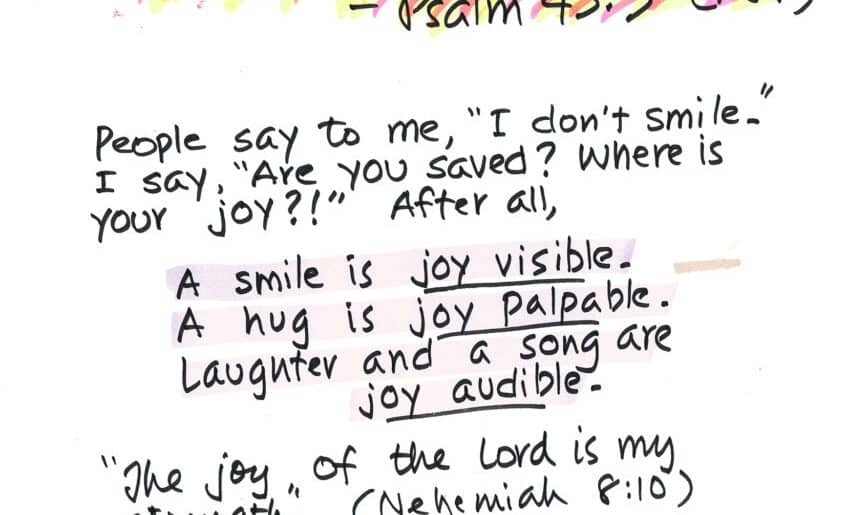 - Psalm 43:
People say to me, "I don't smile."
I say, "Are you saved? Where is
your joy?!" After all,
A smile is joy visible.
A hug is joy palpable.
Laughter and a song are
joy audible.
"The joy of the Lord is my
" (Nehemiah 8:10)